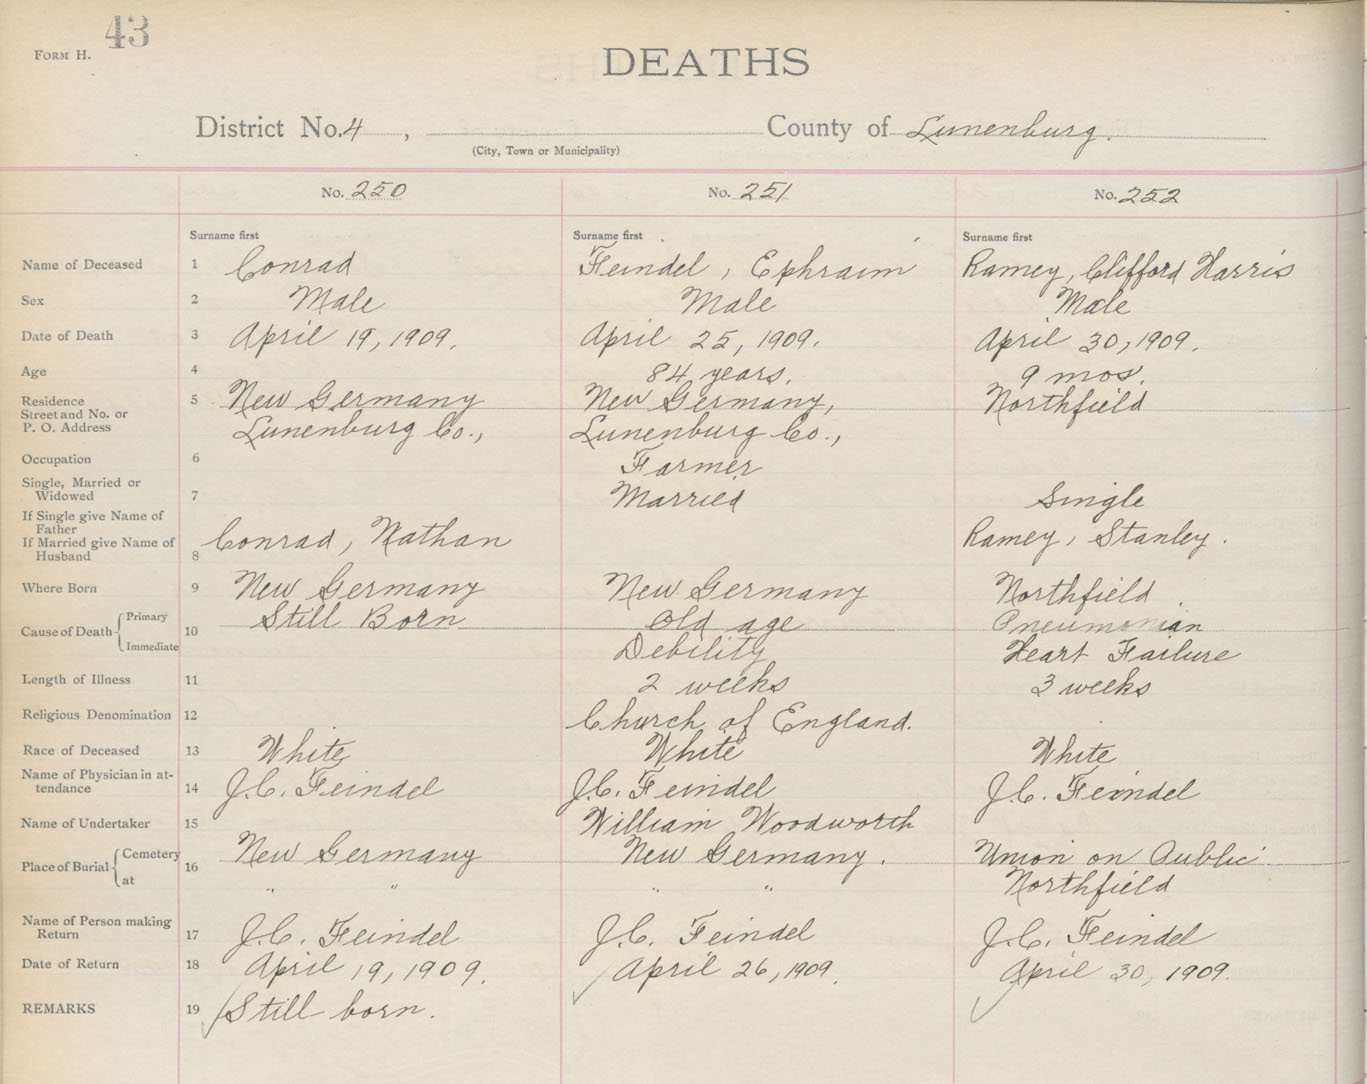 43
FORM H.
DEATHS
District No. 4 , County of Lunenburg.
(City, Town or Municipality)
No. 250 No. 251 No. 252
Surname first Surname first Surname first
Name of Deceased 1 Conrad Feindel, Ephraim Ramey, Clifford Harris
Sex 2 Male Male Male
Date of Death 3 April 19, 1909. April 25, 1909. April 30, 1909.
Age 4 84 years. 9 mos.
Residence 5 New Germany New Germany, Northfield
Street and No. or
P. O. Address Lunenburg Co., Lunenburg Co.,
Occupation 6 Farmer
Single, Married or
Widowed 7 Married Single
If Single give Name of
Father
If Married give Name of
Husband 8 Conrad, Nathan Ramey, Stanley.
Where Born 9 New Germany New Germany Northfield.
Cause of Death Primary 10 Still Born Old age Pneumonian
Immediate Debility Heart Failure
Length of Illness 11 2 weeks 3 weeks
Religious Denomination 12 Church of England.
Race of Deceased 13 White White White
Name of Physician in at-
tendance 14 J.C. Feindel J.C. Feindel J.C. Feindel
Name of Undertaker 15 William Woodworth
Place of Burial Cemetery 16 New Germany New Germany. Union on Public
at " " " " Northfield
Name of Person making
Return 17 J.C. Feindel J.C. Feindel J.C. Feindel
Date of Return 18 April 19, 1909. April 26, 1909. April 30, 1909.
REMARKS 19 Still born.